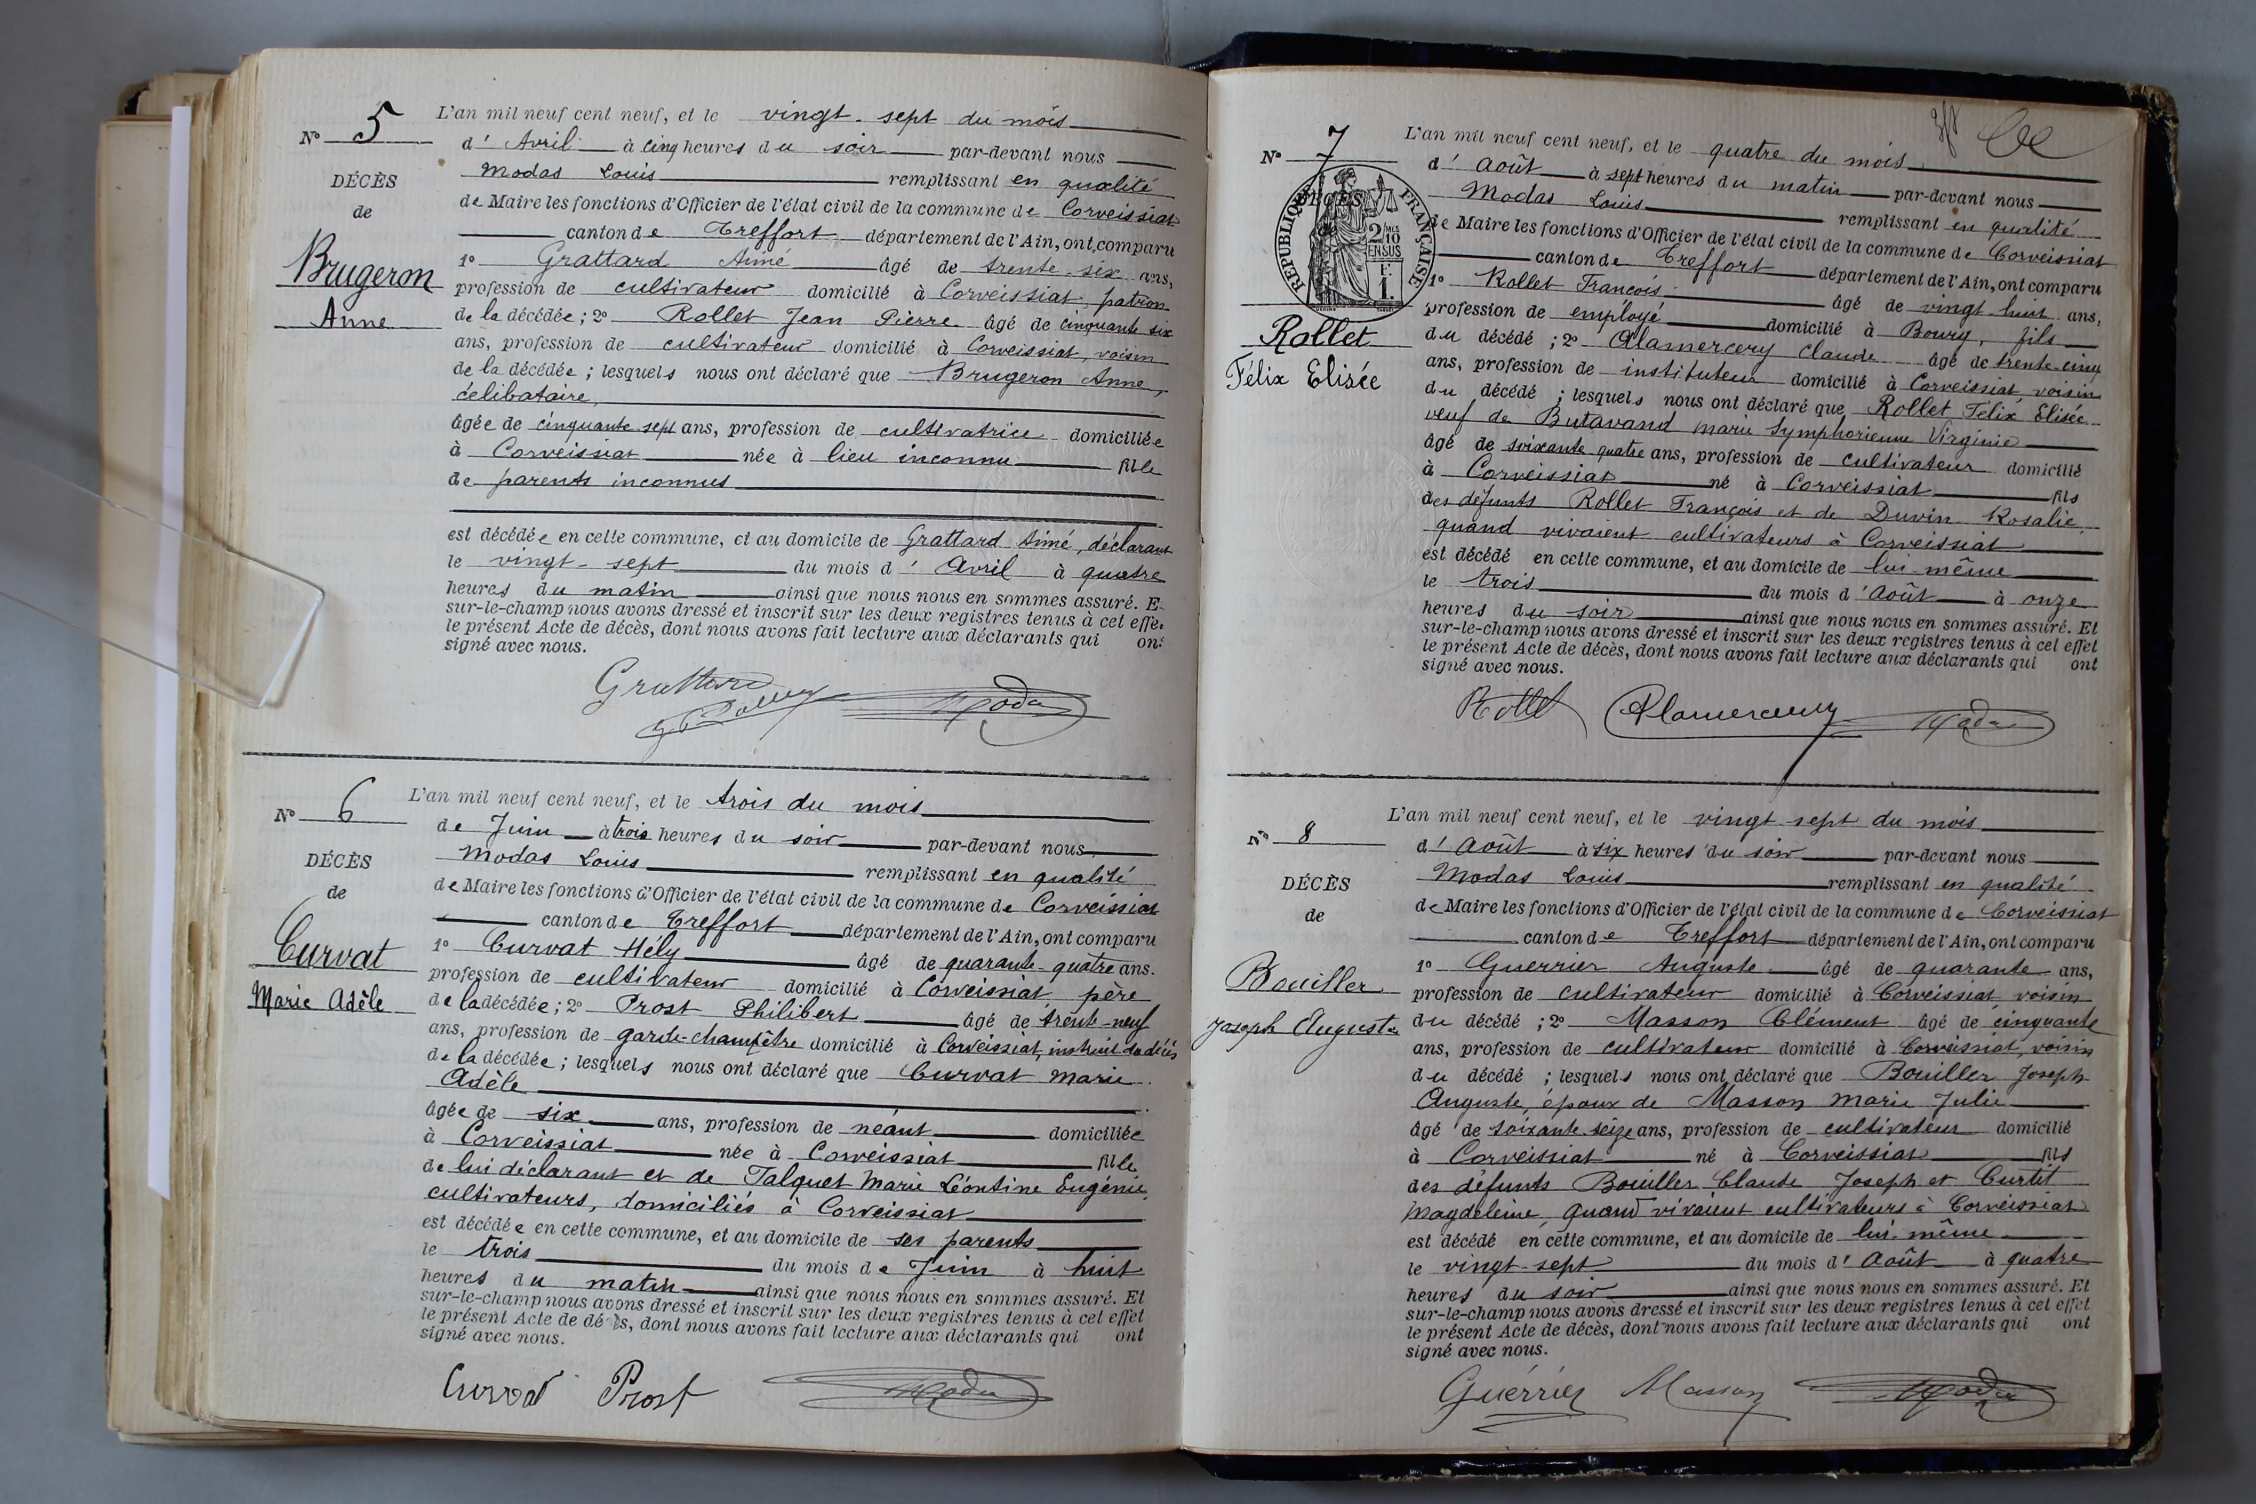 N° 5
DÉCÈS
de
Brugeron
Anne
L'an mil neuf cent neuf, et le vingt-sept du mois
d' Avril à cinq heures du soir par-devant nous
Modas Louis remplissant en qualité
de Maire les fonctions d'Officier de l'état civil de la commune de Corveissiat
canton de Treffort département de l'Ain, ont comparu
1° Grattard Aimé âgé de trente-six ans,
profession de cultivateur domicilié à Corveissiat, patron
de la décédée ; 2° Rollet Jean Pierre âgé de cinquante six
ans, profession de cultivateur domicilié à Corveissiat, voisin
de la décédée ; lesquels nous ont déclaré que Brugeron Anne,
célibataire,
âgée de cinquante sept ans, profession de cultivatrice domiciliée
à Corveissiat née à lieu inconnu fille
de parents inconnus
est décédée en cette commune, et au domicile de Grattard Aimé, déclarant
le vingt-sept du mois d' Avril à quatre
heures du matin ainsi que nous nous en sommes assuré. E
sur-le-champ nous avons dressé et inscrit sur les deux registres tenus à cet effe
le présent Acte de décès, dont nous avons fait lecture aux déclarants qui on
signé avec nous.
Grattard
Modas
N° 6
DÉCÈS
de
Curvat
Marie Adèle
L'an mil neuf cent neuf, et le trois du mois
de Juin à trois heures du soir par-devant nous
Modas Louis remplissant en qualité
de Maire les fonctions d'Officier de l'état civil de la commune de Corveissiat
canton de Treffort département de l'Ain, ont comparu
1° Curvat Hély âgé de quarante-quatre ans.
profession de cultivateur domicilié à Corveissiat, père
de la décédée ; 2° Prost Philibert âgé de trente-neuf
ans, profession de garde-champêtre domicilié à Corveissiat, instruit du décès
de la décédée ; lesquels nous ont déclaré que Curvat Marie
Adèle
âgée de six ans, profession de néant domiciliée
à Corveissiat née à Corveissiat fille
de lui déclarant et de Talquet Marie Léontine Eugénie,
cultivateurs, domiciliés à Corveissiat
est décédée en cette commune, et au domicile de ses parents
le trois du mois de Juin à huit
heures du matin ainsi que nous nous en sommes assuré. Et
sur-le-champ nous avons dressé et inscrit sur les deux registres tenus à cet effet
le présent Acte de décès, dont nous avons fait lecture aux déclarants qui ont
signé avec nous.
Curvat Prost Modas
N° 7
DÉCÈS
RÉPUBLIQUE FRANÇAISE
2 MES 10 EN SUS
F. 1.
Rollet
Félix Elisée
L'an mil neuf cent neuf, et le quatre du mois
d' Août à sept heures du matin par-devant nous
Modas Louis remplissant en qualité
de Maire les fonctions d'Officier de l'état civil de la commune de Corveissiat
canton de Treffort département de l'Ain, ont comparu
1° Rollet François âgé de vingt huit ans,
profession de employé domicilié à Bourg, fils
du décédé ; 2° Alamercery Claude âgé de trente-cinq
ans, profession de instituteur domicilié à Corveissiat, voisin
du décédé ; lesquels nous ont déclaré que Rollet Félix Elisée
veuf de Butavand Marie Symphorienne Virginie
âgé de soixante quatre ans, profession de cultivateur domicilié
à Corveissiat né à Corveissiat fils
des défunts Rollet François et de Duvin Rosalie
quand vivaient cultivateurs à Corveissiat
est décédé en cette commune, et au domicile de lui-même
le trois du mois d' Août à onze
heures du soir ainsi que nous nous en sommes assuré. Et
sur-le-champ nous avons dressé et inscrit sur les deux registres tenus à cet effet
le présent Acte de décès, dont nous avons fait lecture aux déclarants qui ont
signé avec nous.
Rollet Alamercery Modas
N° 8
DÉCÈS
de
Bouiller
Joseph Auguste
L'an mil neuf cent neuf, et le vingt-sept du mois
d' Août à six heures du soir par-devant nous
Modas Louis remplissant en qualité
de Maire les fonctions d'Officier de l'état civil de la commune de Corveissiat
canton de Treffort département de l'Ain, ont comparu
1° Guerrier Auguste âgé de quarante ans,
profession de cultivateur domicilié à Corveissiat, voisin
du décédé ; 2° Masson Clément âgé de cinquante
ans, profession de cultivateur domicilié à Corveissiat, voisin
du décédé ; lesquels nous ont déclaré que Bouiller Joseph
Auguste, époux de Masson Marie Julie
âgé de soixante seize ans, profession de cultivateur domicilié
à Corveissiat né à Corveissiat fils
des défunts Bouiller Claude Joseph et Curtit
Magdeleine, quand vivaient cultivateurs à Corveissiat
est décédé en cette commune, et au domicile de lui-même
le vingt-sept du mois d' Août à quatre
heures du soir ainsi que nous nous en sommes assuré. Et
sur-le-champ nous avons dressé et inscrit sur les deux registres tenus à cet effet
le présent Acte de décès, dont nous avons fait lecture aux déclarants qui ont
signé avec nous.
Guérrier Masson Modas